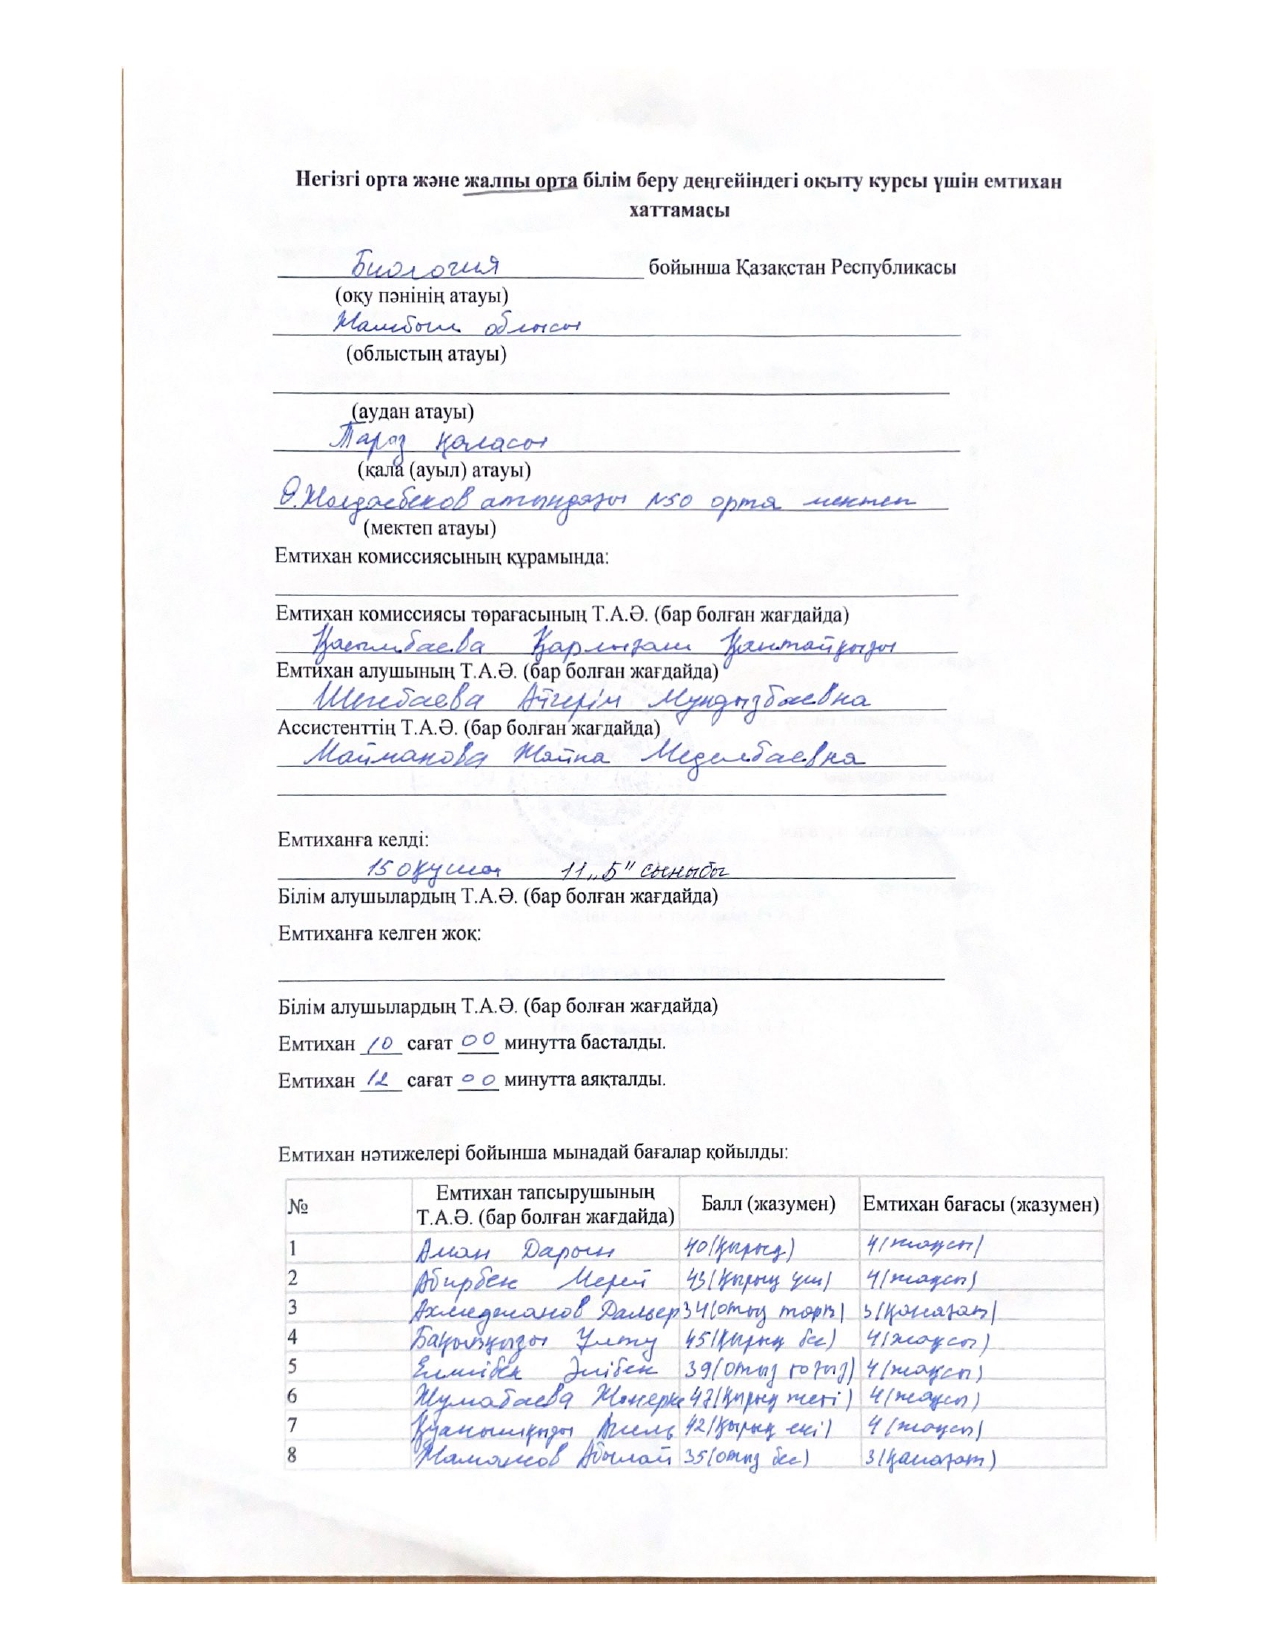 Негізгі орта және жалпы орта білім беру деңгейіндегі оқыту курсы үшін емтихан
хаттамасы
Биология бойынша Қазақстан Республикасы
(оқу пәнінің атауы)
Жамбыл облысы
(облыстың атауы)
(аудан атауы)
Тараз қаласы
(қала (ауыл) атауы)
Ө.Жолдасбеков атындағы №50 орта мектеп
(мектеп атауы)
Емтихан комиссиясының құрамында:
Емтихан комиссиясы төрағасының Т.А.Ә. (бар болған жағдайда)
Қасымбаева Қарлығаш
Емтихан алушының Т.А.Ә. (бар болған жағдайда)
Шенбаева Айгерім Мундызбаевна
Ассистенттің Т.А.Ә. (бар болған жағдайда)
Майманова Жайна Меделбаевна
Емтиханға келді:
15 оқушы 11 "Б" сыныбы
Білім алушылардың Т.А.Ә. (бар болған жағдайда)
Емтиханға келген жоқ:
Білім алушылардың Т.А.Ә. (бар болған жағдайда)
Емтихан 10 сағат 00 минутта басталды.
Емтихан 12 сағат 00 минутта аяқталды.
Емтихан нәтижелері бойынша мынадай бағалар қойылды:
№ Емтихан тапсырушының Т.А.Ә. (бар болған жағдайда) Балл (жазумен) Емтихан бағасы (жазумен)
1 Аман Дарын 40(қырық) 4(жақсы)
2 Абирбек Мерей 43(қырық үш) 4(жақсы)
3 Ахмеджанов Дальер 34(отыз төрт) 3(қанағат)
4 Бақытқызы Ұлту 45(қырық бес) 4(жақсы)
5 Елшібек Әлібек 39(отыз тоғыз) 4(жақсы)
6 Жумабаева 47(қырық жеті) 4(жақсы)
7 Қуанышқызы 42(қырық екі) 4(жақсы)
8 Маманов Абылай 35(отыз бес) 3(қанағат)